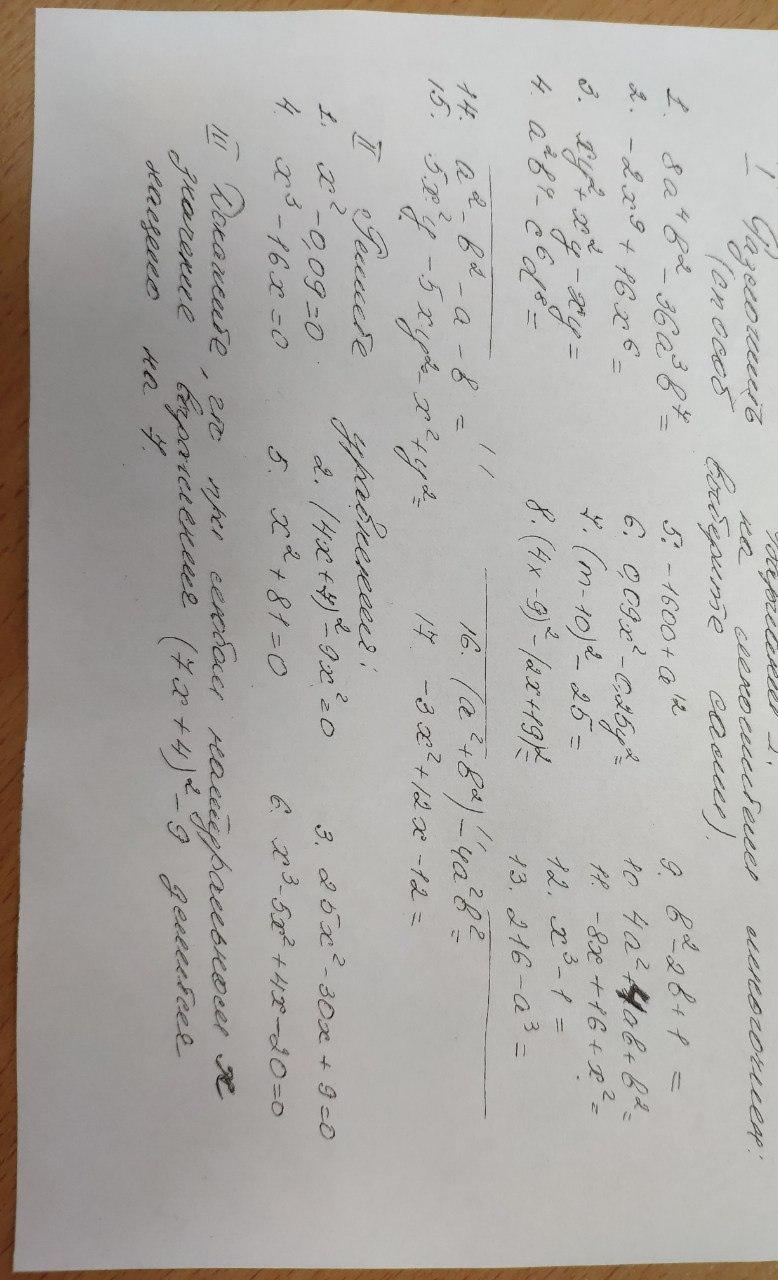 Вариант 1.
I Разложить на множители многочлен:
(способ выберите сами).
1. 8a⁴b² - 36a³b⁷ =
2. -2x⁹ + 16x⁶ =
3. xy² + x²y - xy =
4. a²b⁴ - c⁶d⁸ =
5. -1600 + a¹²
6. 0,09x² - 0,25y² =
7. (m-10)² - 25 =
8. (4x-9)² - (2x+19)² =
9. b² - 2b + 1 =
10. 4a² + 4ab + b² =
11. -8x + 16 + x² =
12. x³ - 1 =
13. 216 - a³ =
14. a² - b² - a - b =
15. 5x²y - 5xy² - x² + y² =
16. (a² + b²) - 4a²b² =
17. -3x² + 12x - 12 =
II Решите уравнения:
1. x² - 0,09 = 0
2. (4x+7)² - 9x² = 0
3. 25x² - 30x + 9 = 0
4. x³ - 16x = 0
5. x² + 81 = 0
6. x³ - 5x² + 4x - 20 = 0
III Докажите, что при любом натуральном x
значение выражения (7x+4)² - 9 делится
нацело на 7.